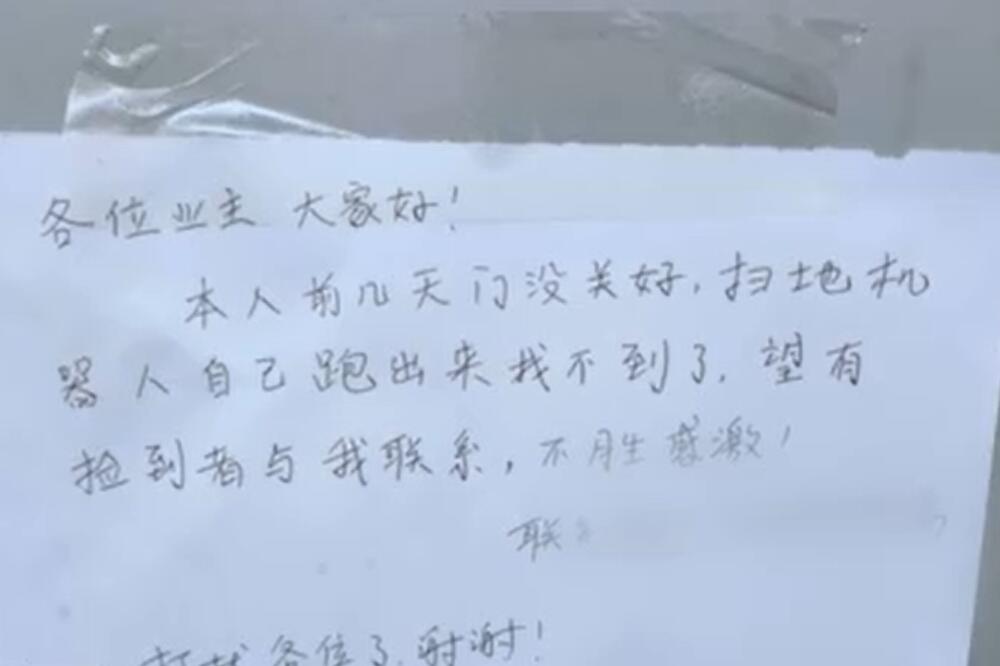 各位业主 大家好！
本人前几天门没关好，扫地机
器人自己跑出来找不到了，望有
捡到者与我联系，不胜感激！
联
打扰各位了，谢谢！